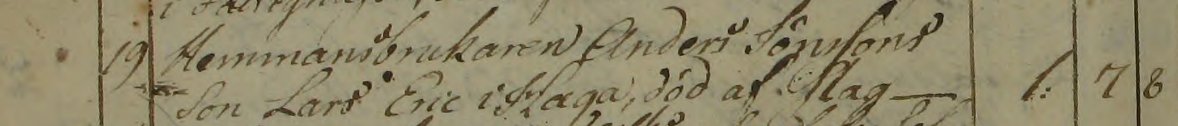 19 Hemmansbrukaren Anders Jönsons
Son Lars Eric i Haga, död af Slag — 1: 7 8